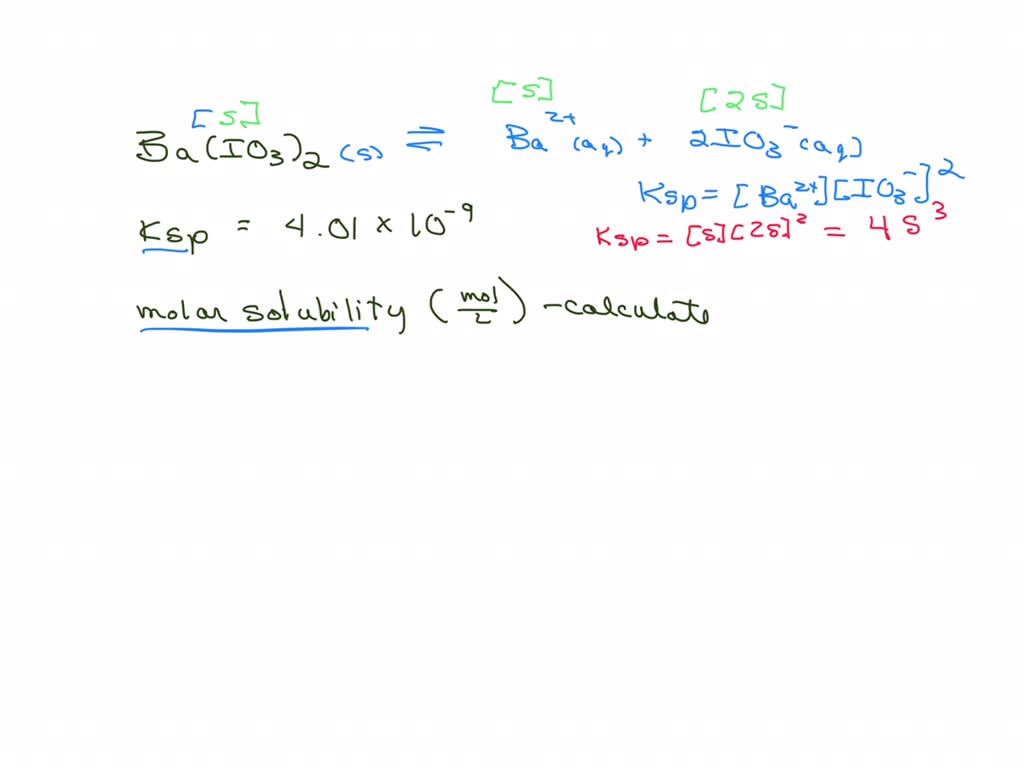 [s] [s] [2s]
Ba(IO₃)₂ (s) ⇌ Ba²⁺ (aq) + 2IO₃⁻ (aq)
Ksp = [Ba²⁺][IO₃⁻]²
Ksp = 4.01 × 10⁻⁹
Ksp = [s][2s]² = 4s³
molar solubility (mol/L) - calculate